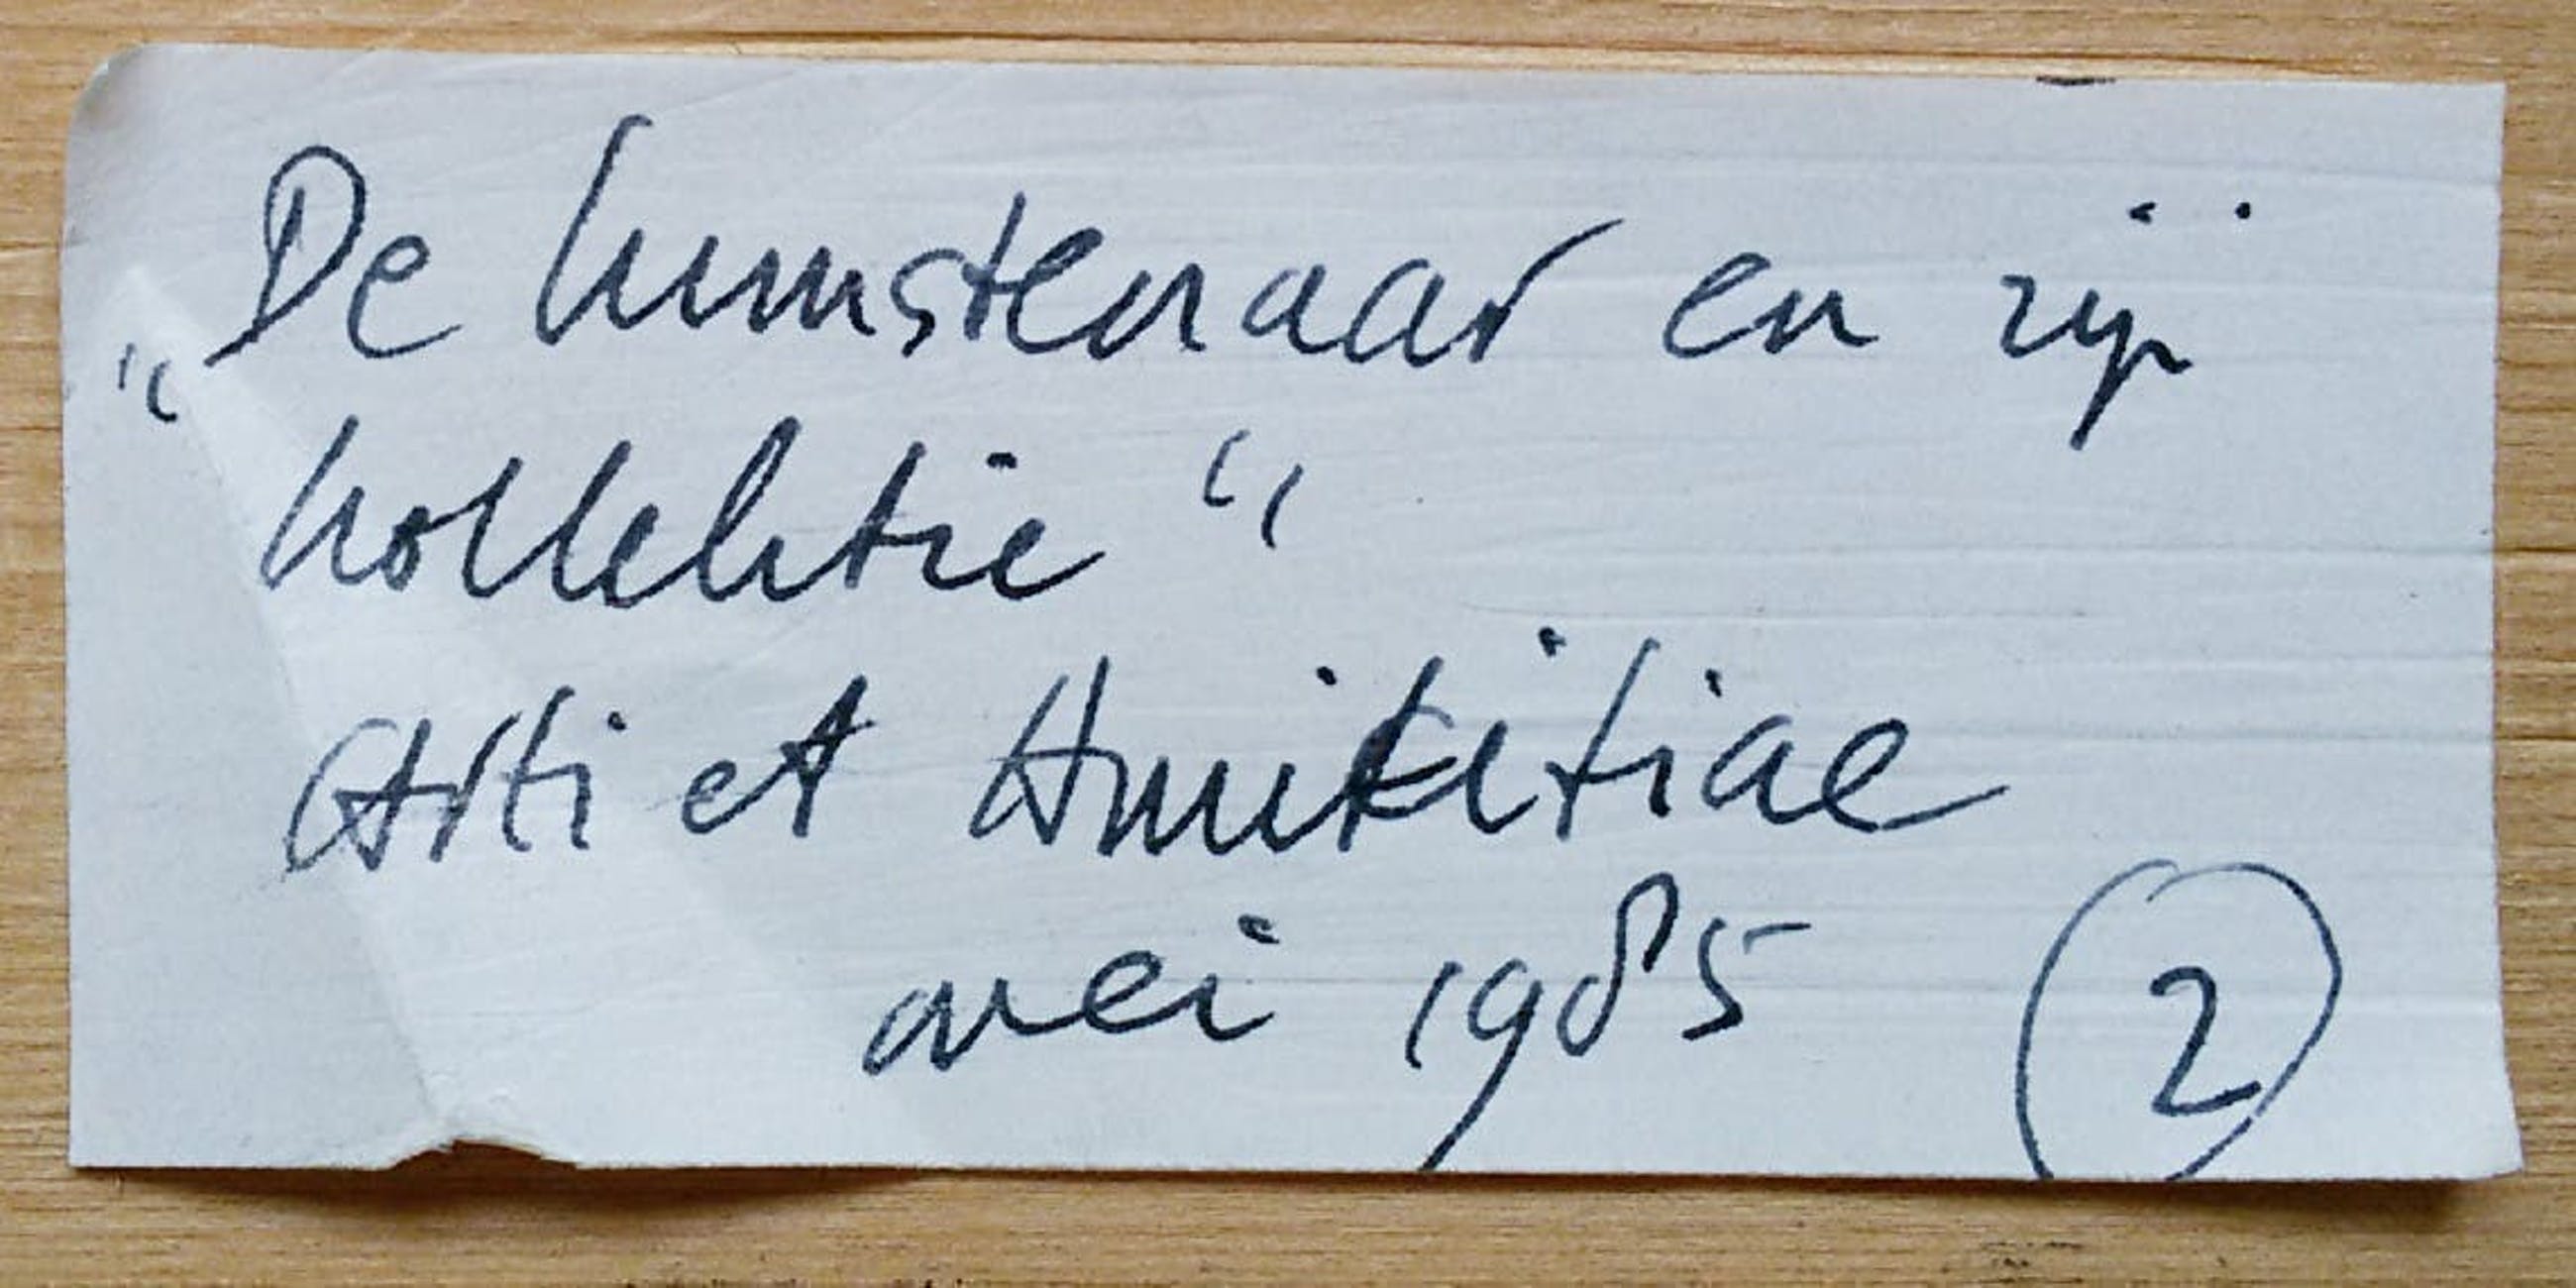 „De kunstenaar en zijn
kollektie“
Arti et Amicitiae
mei 1985
2